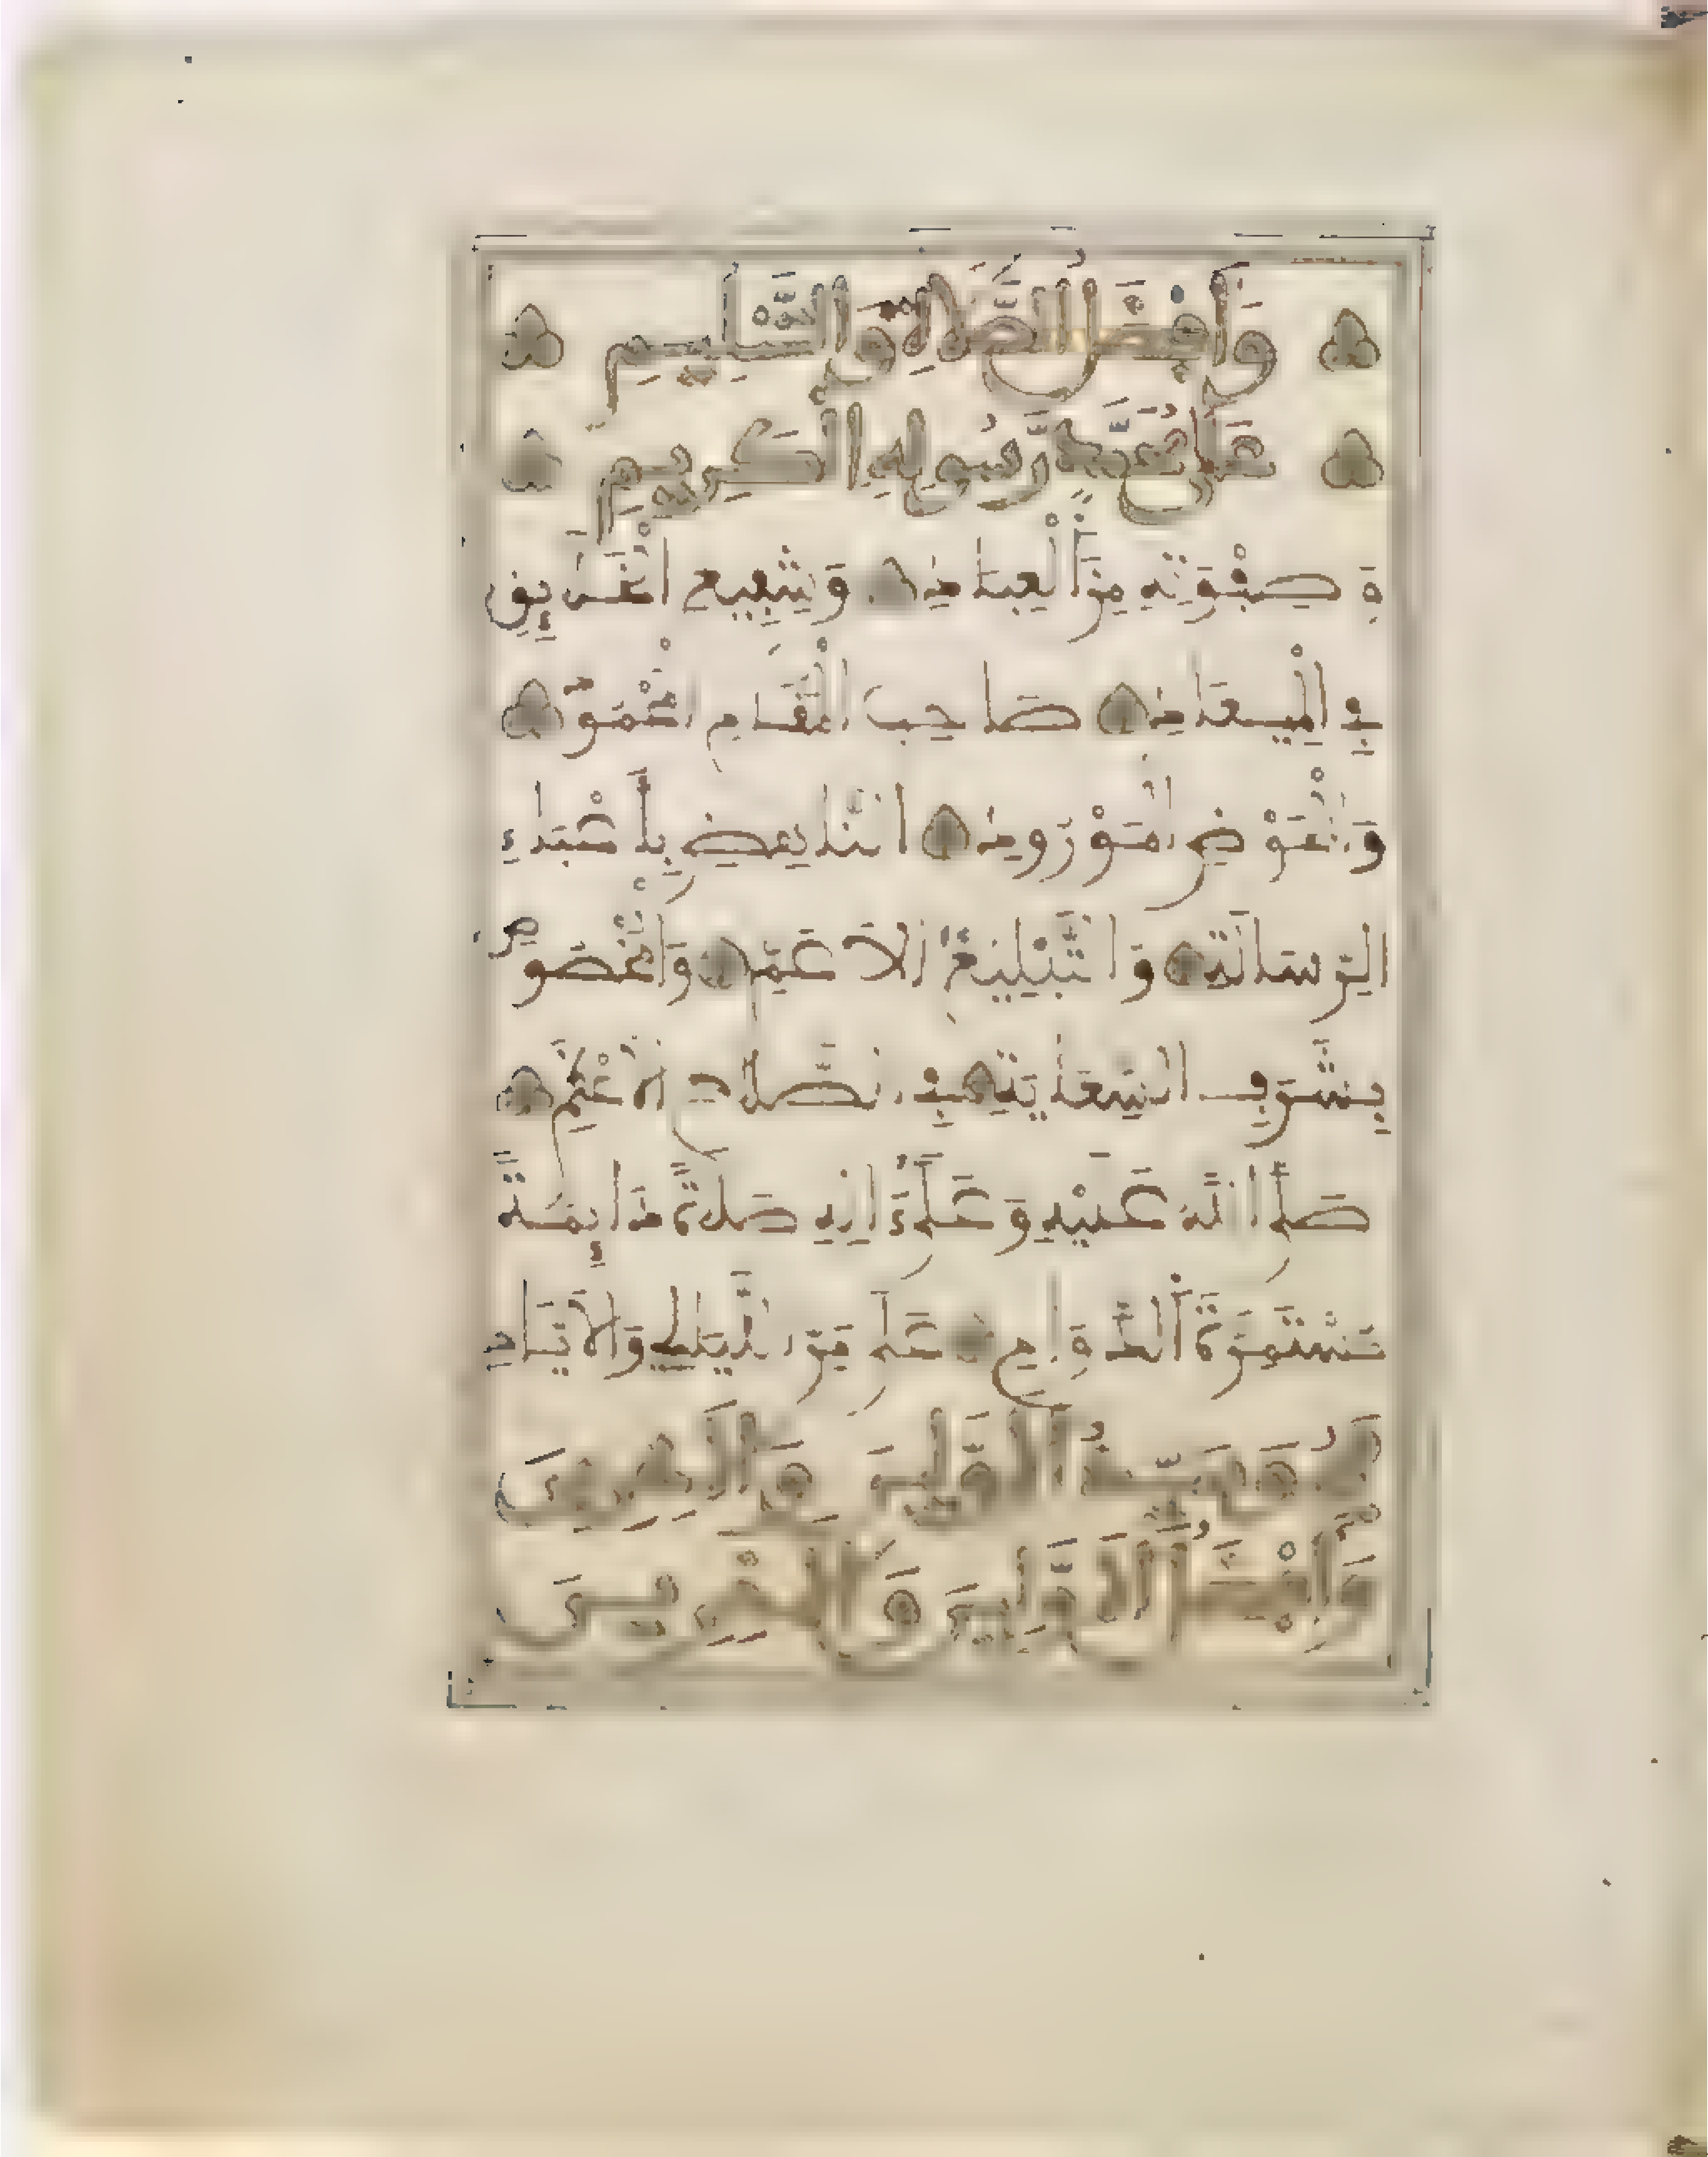 وَأَفْضَلُ الصَّلَاةِ وَالتَّسْلِيمِ
عَلَى مُحَمَّدٍ رَّسُولِهِ الْكَرِيمِ
وَصَفْوَتِهِ مِنَ الْعِبَادِ وَشَفِيعِ الْخَلَائِقِ
فِي الْمِيعَادِ صَاحِبِ الْمَقَامِ الْمَحْمُودِ
وَالْحَوْضِ الْمَوْرُودِ النَّاهِضِ بِأَعْبَاءِ
الرِّسَالَةِ وَالتَّبْلِيغِ الْأَعَمِّ وَالْمَخْصُوصِ
بِشَرَفِ السِّعَايَةِ فِي الصَّلَاحِ الْأَعْظَمِ
صَلَّى اللَّهُ عَلَيْهِ وَعَلَى آلِهِ صَلَاةً دَائِمَةً
مُسْتَمِرَّةَ الدَّوَامِ عَلَى مَرِّ اللَّيَالِي وَالْأَيَّامِ
فَهُوَ سَيِّدُ الْأَوَّلِينَ وَالْآخِرِينَ
وَأَفْضَلُ الْأَوَّلِينَ وَالْآخِرِينَ